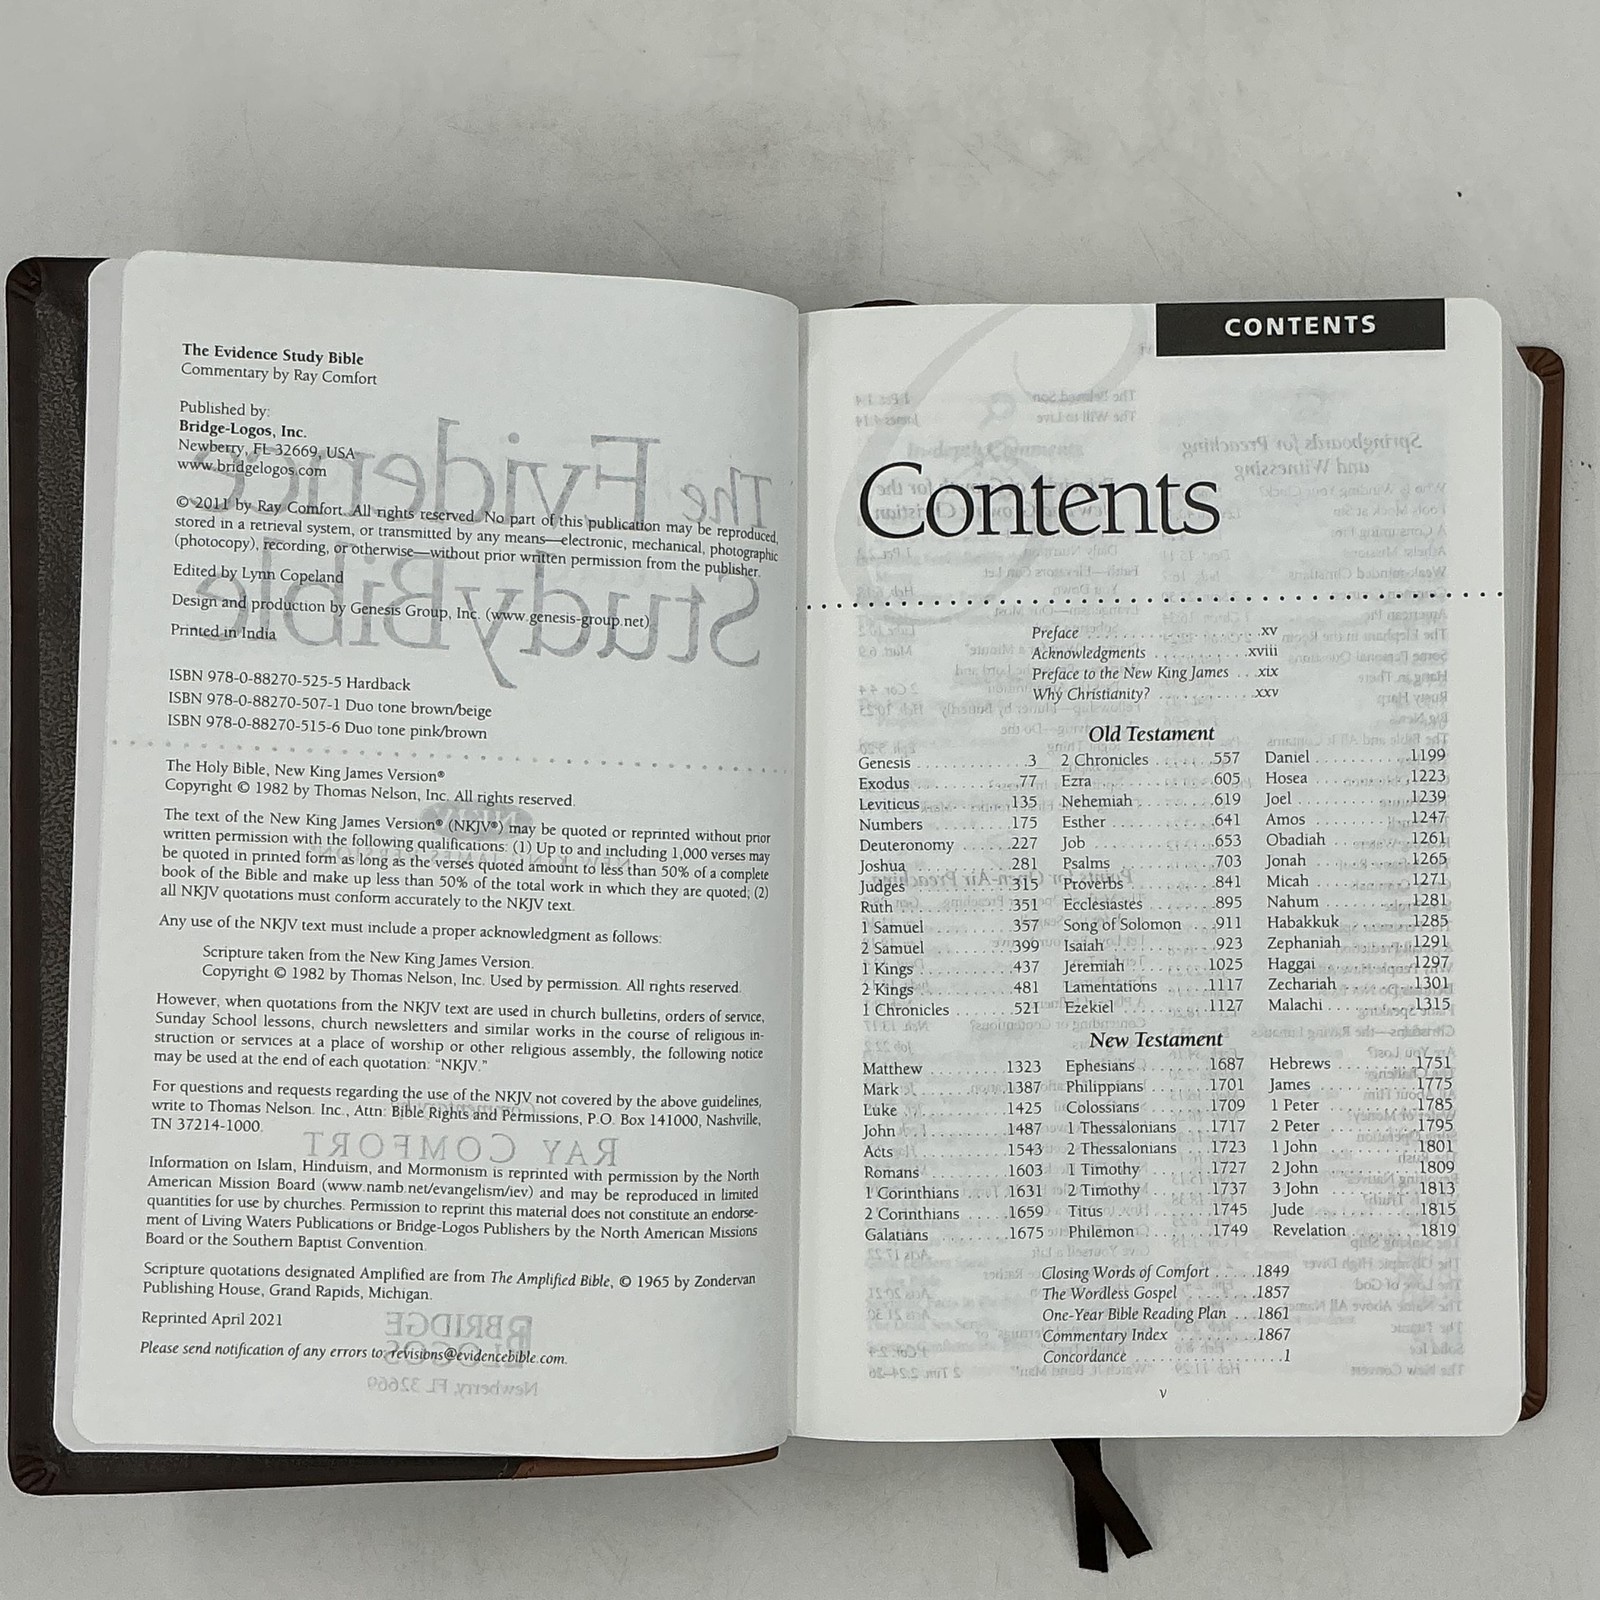 The Evidence Study Bible
Commentary by Ray Comfort
Published by:
Bridge-Logos, Inc.
Newberry, FL 32669, USA
www.bridgelogos.com
© 2011 by Ray Comfort. All rights reserved. No part of this publication may be reproduced,
stored in a retrieval system, or transmitted by any means—electronic, mechanical, photographic
(photocopy), recording, or otherwise—without prior written permission from the publisher.
Edited by Lynn Copeland
Design and production by Genesis Group, Inc. (www.genesis-group.net)
Printed in India
ISBN 978-0-88270-525-5 Hardback
ISBN 978-0-88270-507-1 Duo tone brown/beige
ISBN 978-0-88270-515-6 Duo tone pink/brown
The Holy Bible, New King James Version®
Copyright © 1982 by Thomas Nelson, Inc. All rights reserved.
The text of the New King James Version® (NKJV®) may be quoted or reprinted without prior
written permission with the following qualifications: (1) Up to and including 1,000 verses may
be quoted in printed form as long as the verses quoted amount to less than 50% of a complete
book of the Bible and make up less than 50% of the total work in which they are quoted; (2)
all NKJV quotations must conform accurately to the NKJV text.
Any use of the NKJV text must include a proper acknowledgment as follows:
Scripture taken from the New King James Version.
Copyright © 1982 by Thomas Nelson, Inc. Used by permission. All rights reserved.
However, when quotations from the NKJV text are used in church bulletins, orders of service,
Sunday School lessons, church newsletters and similar works in the course of religious in-
struction or services at a place of worship or other religious assembly, the following notice
may be used at the end of each quotation: “NKJV.”
For questions and requests regarding the use of the NKJV not covered by the above guidelines,
write to Thomas Nelson. Inc., Attn: Bible Rights and Permissions, P.O. Box 141000, Nashville,
TN 37214-1000.
Information on Islam, Hinduism, and Mormonism is reprinted with permission by the North
American Mission Board (www.namb.net/evangelism/iev) and may be reproduced in limited
quantities for use by churches. Permission to reprint this material does not constitute an endorse-
ment of Living Waters Publications or Bridge-Logos Publishers by the North American Missions
Board or the Southern Baptist Convention.
Scripture quotations designated Amplified are from The Amplified Bible, © 1965 by Zondervan
Publishing House, Grand Rapids, Michigan.
Reprinted April 2021
Please send notification of any errors to: revisions@evidencebible.com.
CONTENTS
Contents
Preface xv
Acknowledgments xviii
Preface to the New King James xix
Why Christianity? xxv
Old Testament
Genesis 3
Exodus 77
Leviticus 135
Numbers 175
Deuteronomy 227
Joshua 281
Judges 315
Ruth 351
1 Samuel 357
2 Samuel 399
1 Kings 437
2 Kings 481
1 Chronicles 521
2 Chronicles 557
Ezra 605
Nehemiah 619
Esther 641
Job 653
Psalms 703
Proverbs 841
Ecclesiastes 895
Song of Solomon 911
Isaiah 923
Jeremiah 1025
Lamentations 1117
Ezekiel 1127
Daniel 1199
Hosea 1223
Joel 1239
Amos 1247
Obadiah 1261
Jonah 1265
Micah 1271
Nahum 1281
Habakkuk 1285
Zephaniah 1291
Haggai 1297
Zechariah 1301
Malachi 1315
New Testament
Matthew 1323
Mark 1387
Luke 1425
John 1487
Acts 1543
Romans 1603
1 Corinthians 1631
2 Corinthians 1659
Galatians 1675
Ephesians 1687
Philippians 1701
Colossians 1709
1 Thessalonians 1717
2 Thessalonians 1723
1 Timothy 1727
2 Timothy 1737
Titus 1745
Philemon 1749
Hebrews 1751
James 1775
1 Peter 1785
2 Peter 1795
1 John 1801
2 John 1809
3 John 1813
Jude 1815
Revelation 1819
Closing Words of Comfort 1849
The Wordless Gospel 1857
One-Year Bible Reading Plan 1861
Commentary Index 1867
Concordance 1
v